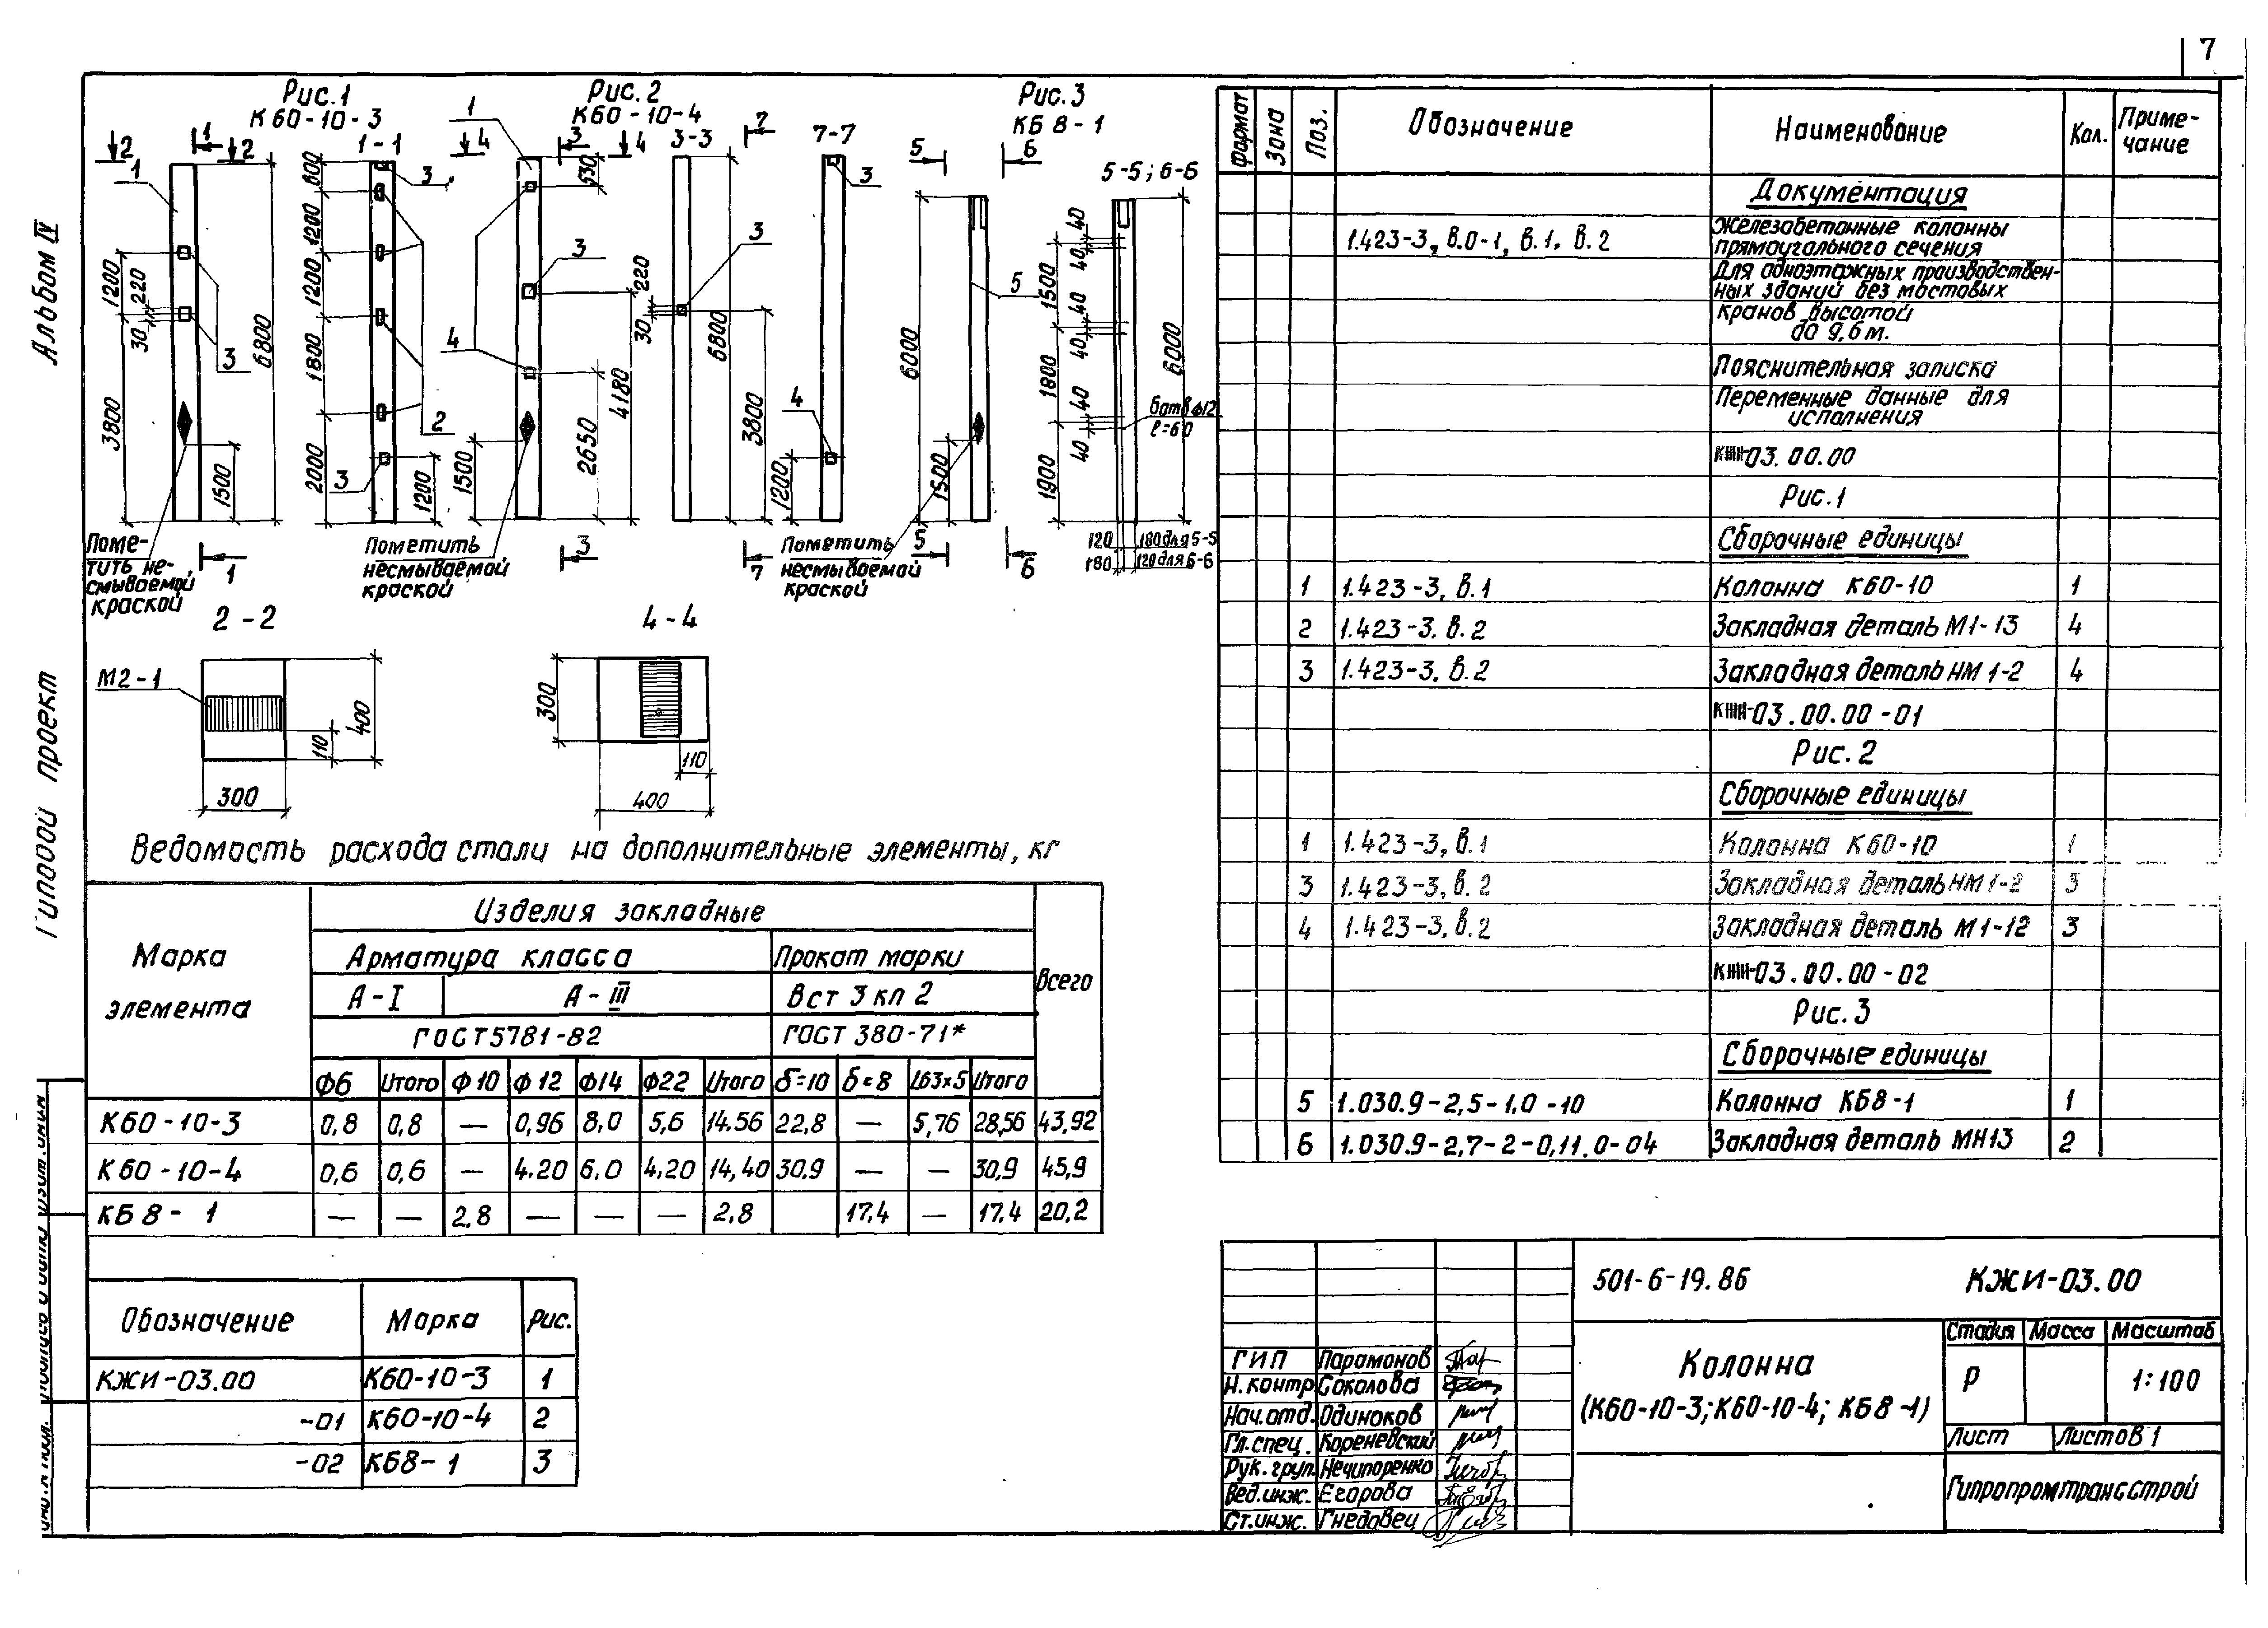 7
Альбом IV
Типовой проект
Рис.1
К60-10-3
Рис. 2
К60-10-4
Рис. 3
КБ 8-1
1-1
3-3
7-7
5-5; 6-6
2
2
1
1
3
3
6800
1200
220
30
3800
1500
600
1200
1200
1800
2000
3
2
3
1200
4
4
3
1
530
3
4
4180
2650
1500
7
3
220
30
6800
3800
3
4
1200
5
6
5
6000
1500
40
40
1500
40
40
1800
40
40
1900
6000
6 отв ф12
ℓ=60
120
180 для 5-5
180
120 для 6-6
Поме-
тить не-
смываемой
краской
1
Пометить
несмываемой
краской
3
7
Пометить
несмываемой
краской
5
6
2-2
М2-1
400
110
300
4-4
300
110
400
Ведомость расхода стали на дополнительные элементы, кг
Марка
элемента
Изделия закладные
Всего
Арматура класса
Прокат марки
А-I
А-III
Вст 3 кп 2
ГОСТ 5781-82
ГОСТ 380-71*
Ф6 Итого Ф10 Ф12 Ф14 Ф22 Итого δ=10 δ=8 L63х5 Итого
К60-10-3 0,8 0,8 — 0,96 8,0 5,6 14.56 22,8 — 5,76 28,56 43,92
К60-10-4 0,6 0,6 — 4.20 6.0 4,20 14,40 30.9 — — 30,9 45,9
КБ 8-1 — — 2,8 — — — 2,8 17,4 — 17.4 20,2
Обозначение Марка Рис.
КЖИ-03.00 К60-10-3 1
-01 К60-10-4 2
-02 КБ8-1 3
Формат Зона Поз. Обозначение Наименование Кол. Приме-
чание
Документация
1.423-3, в.0-1, в.1, в.2
Железобетонные колонны
прямоугольного сечения
Для одноэтажных производствен-
ных зданий без мостовых
кранов высотой
до 9,6 м.
Пояснительная записка
Переменные данные для
исполнения
КЖИ-03.00.00
Рис.1
Сборочные единицы
1 1.423-3, в.1 Колонна К60-10 1
2 1.423-3. в.2 Закладная деталь М1-13 4
3 1.423-3. в.2 Закладная деталь НМ 1-2 4
КЖИ-03.00.00-01
Рис. 2
Сборочные единицы
1 1.423-3, в.1 Колонна К60-10 1
3 1.423-3, в.2 Закладная деталь НМ 1-2 3
4 1.423-3, в.2 Закладная деталь М1-12 3
КЖИ-03.00.00-02
Рис. 3
Сборочные единицы
5 1.030.9-2,5-1,0-10 Колонна КБ8-1 1
6 1.030.9-2,7-2-0,11.0-04 Закладная деталь МН13 2
501-6-19.86 КЖИ-03.00
Колонна
(К60-10-3; К60-10-4; КБ8-1)
Стадия Масса Масштаб
Р 1:100
Лист Листов 1
Гипропромтрансстрой
ГИП Парамонов
Н.контр. Соколова
Нач.отд. Одиноков
Гл.спец. Кореневский
Рук.груп. Нечипоренко
Вед.инж. Егорова
Ст.инж. Гнедовец